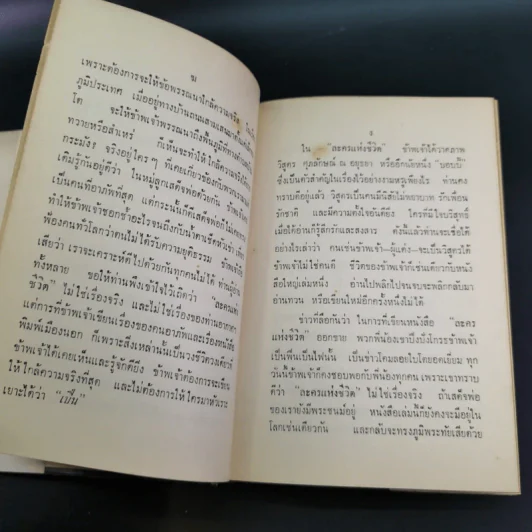 ฆ
เพราะต้องการจะให้ข้อพรรณนาใกล้ความจริง
ภูมิประเทศ เมื่ออยู่ทางบ้านถนนสามเสน
โต จะให้ข้าพเจ้าพรรณนาถึงพื้นภูมิ
ทวายหรือสำเหร่ ก็เห็นจะทำให้ใกล้ความ
กระมัง จริงอยู่ใครๆ ที่เคยเกี่ยวข้องกับ
เต็มรู้กันอยู่ดีว่า ในหมู่ลูกเสด็จพ่อด้วยกัน
เป็นคนที่อาภัพที่สุด แต่กระนั้นก็ดีเสด็จพ่อก็ไม่เคย
ทำให้ข้าพเจ้าชอกช้ำอะไรจนถึงกับน้ำตาเช็ดหัวเข่า
ฟ้องคนทั่วโลกว่าตนไม่ได้รับความยุติธรรม
เสียว่า เราจะเคราะห์ดีไปด้วยกันทุกคนไม่ได้
ทั้งหลาย ขอให้ท่านพึงเข้าใจไว้เถิดว่า “ละครแห่ง
ชีวิต” ไม่ใช่เรื่องจริง และไม่ใช่เรื่องของท่านอากาศฯ
แต่การที่ข้าพเจ้าเขียนเรื่องของคนอาภัพและเรื่องหนังสือ
พิมพ์เมืองนอก ก็เพราะสิ่งเหล่านั้นเป็นวงชีวิตวงเดียวที่
ข้าพเจ้าได้เคยเห็นและรู้จักดียิ่ง ข้าพเจ้าต้องการจะเขียน
ให้ใกล้ความจริงที่สุด และไม่ต้องการให้ใครมาหัวเราะ
เยาะได้ว่า “เปิ่น”
ง
ใน “ละครแห่งชีวิต” ข้าพเจ้าได้วาดภาพ
วิสูตร ศุภลักษณ์ ณ อยุธยา หรืออีกนัยหนึ่ง “บอบบี้”
ซึ่งเป็นตัวสำคัญในเรื่องไว้อย่างงามหรูเพียงไร ท่านคง
ทราบดีอยู่แล้ว วิสูตรเป็นคนมีนิสัยไม่พยาบาท รักเพื่อน
รักชาติ และมีความตั้งใจอันดียิ่ง ใครที่มีใจบริสุทธิ์
เมื่อได้อ่านก็รู้สึกรักและสงสาร ดังนั้นแล้วท่านจะเชื่อได้
อย่างไรเล่าว่า คนเช่นข้าพเจ้า—ผู้แต่ง—จะเป็นวิสูตรได้
ข้าพเจ้าไม่ใช่คนดี ชีวิตของข้าพเจ้าก็เช่นเดียวกับหนัง
สือใหญ่เล่มหนึ่ง อ่านไปพลิกไปจนจบจะพลิกกลับมา
อ่านทวน หรือเขียนใหม่อีกครั้งหนึ่งไม่ได้
ข่าวที่ลือกันว่า ในการที่เขียนหนังสือ “ละคร
แห่งชีวิต” ออกขาย พวกพี่น้องเขาบึ้งบึ้งโกรธข้าพเจ้า
เป็นฟืนเป็นไฟนั้น เป็นข่าวโคมลอยใบโตยอดเยี่ยม ทุก
วันนี้ข้าพเจ้าก็คงชอบพอกับพี่น้องทุกคน เพราะเขาทราบ
ดีว่า “ละครแห่งชีวิต” ไม่ใช่เรื่องจริง ถ้าเสด็จพ่อ
ของเรายังมีพระชนม์อยู่ หนังสือเล่มนี้ก็ยังคงจะมีอยู่ใน
โลกเช่นเดียวกัน และกลับจะทรงภูมิพระทัยเสียด้วย